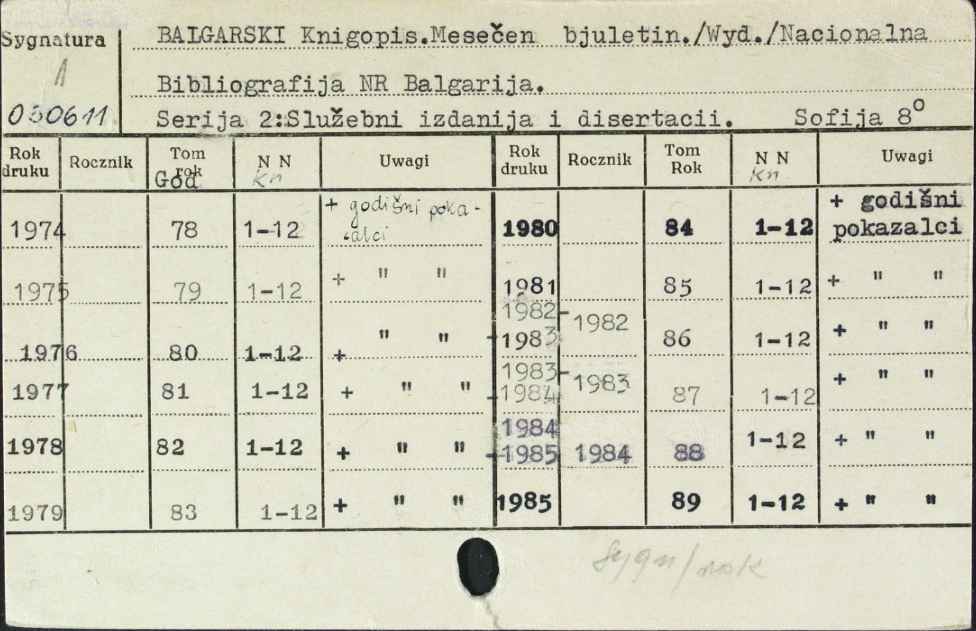 Sygnatura
A
050611
BALGARSKI Knigopis.Mesečen bjuletin./Wyd./Nacionalna
Bibliografija NR Balgarija.
Serija 2:Služebni izdanija i disertacii. Sofija 8°
Rok druku Rocznik Tom rok God N N Kn Uwagi Rok druku Rocznik Tom Rok N N Kn Uwagi
1974 78 1-12 + godišni poka-
zalci
1975 79 1-12 + " "
1976 80 1-12 + " "
1977 81 1-12 + " "
1978 82 1-12 + " "
1979 83 1-12 + " "
1980 84 1-12 + godišni
pokazalci
1981 85 1-12 + " "
1982-
-1983 1982 86 1-12 + " "
1983-
-1984 1983 87 1-12 + " "
1984
-1985 1984 88 1-12 + " "
1985 89 1-12 + " "
sygn/rok